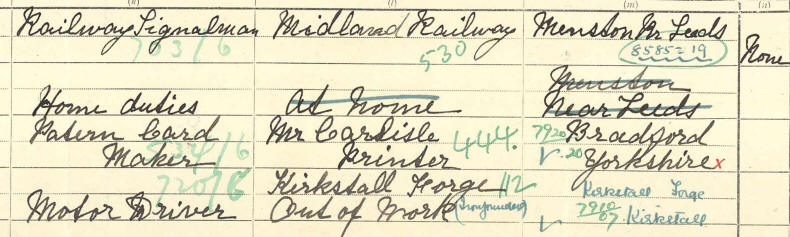 (l) (m) (n)
Railway Signalman Midland Railway Menston Nr Leeds
753/6 530 8585=19 None
Menston
Home duties At home Near Leeds
Patern Card Mr Carlisle 444. 7920 Bradford
Maker 534/6 Printer 20 Yorkshire x
720/6 Kirkstall Forge 112 Kirkstall Forge
Motor Driver Out of Work (Ironfounders) 7910 07 Kirkstall